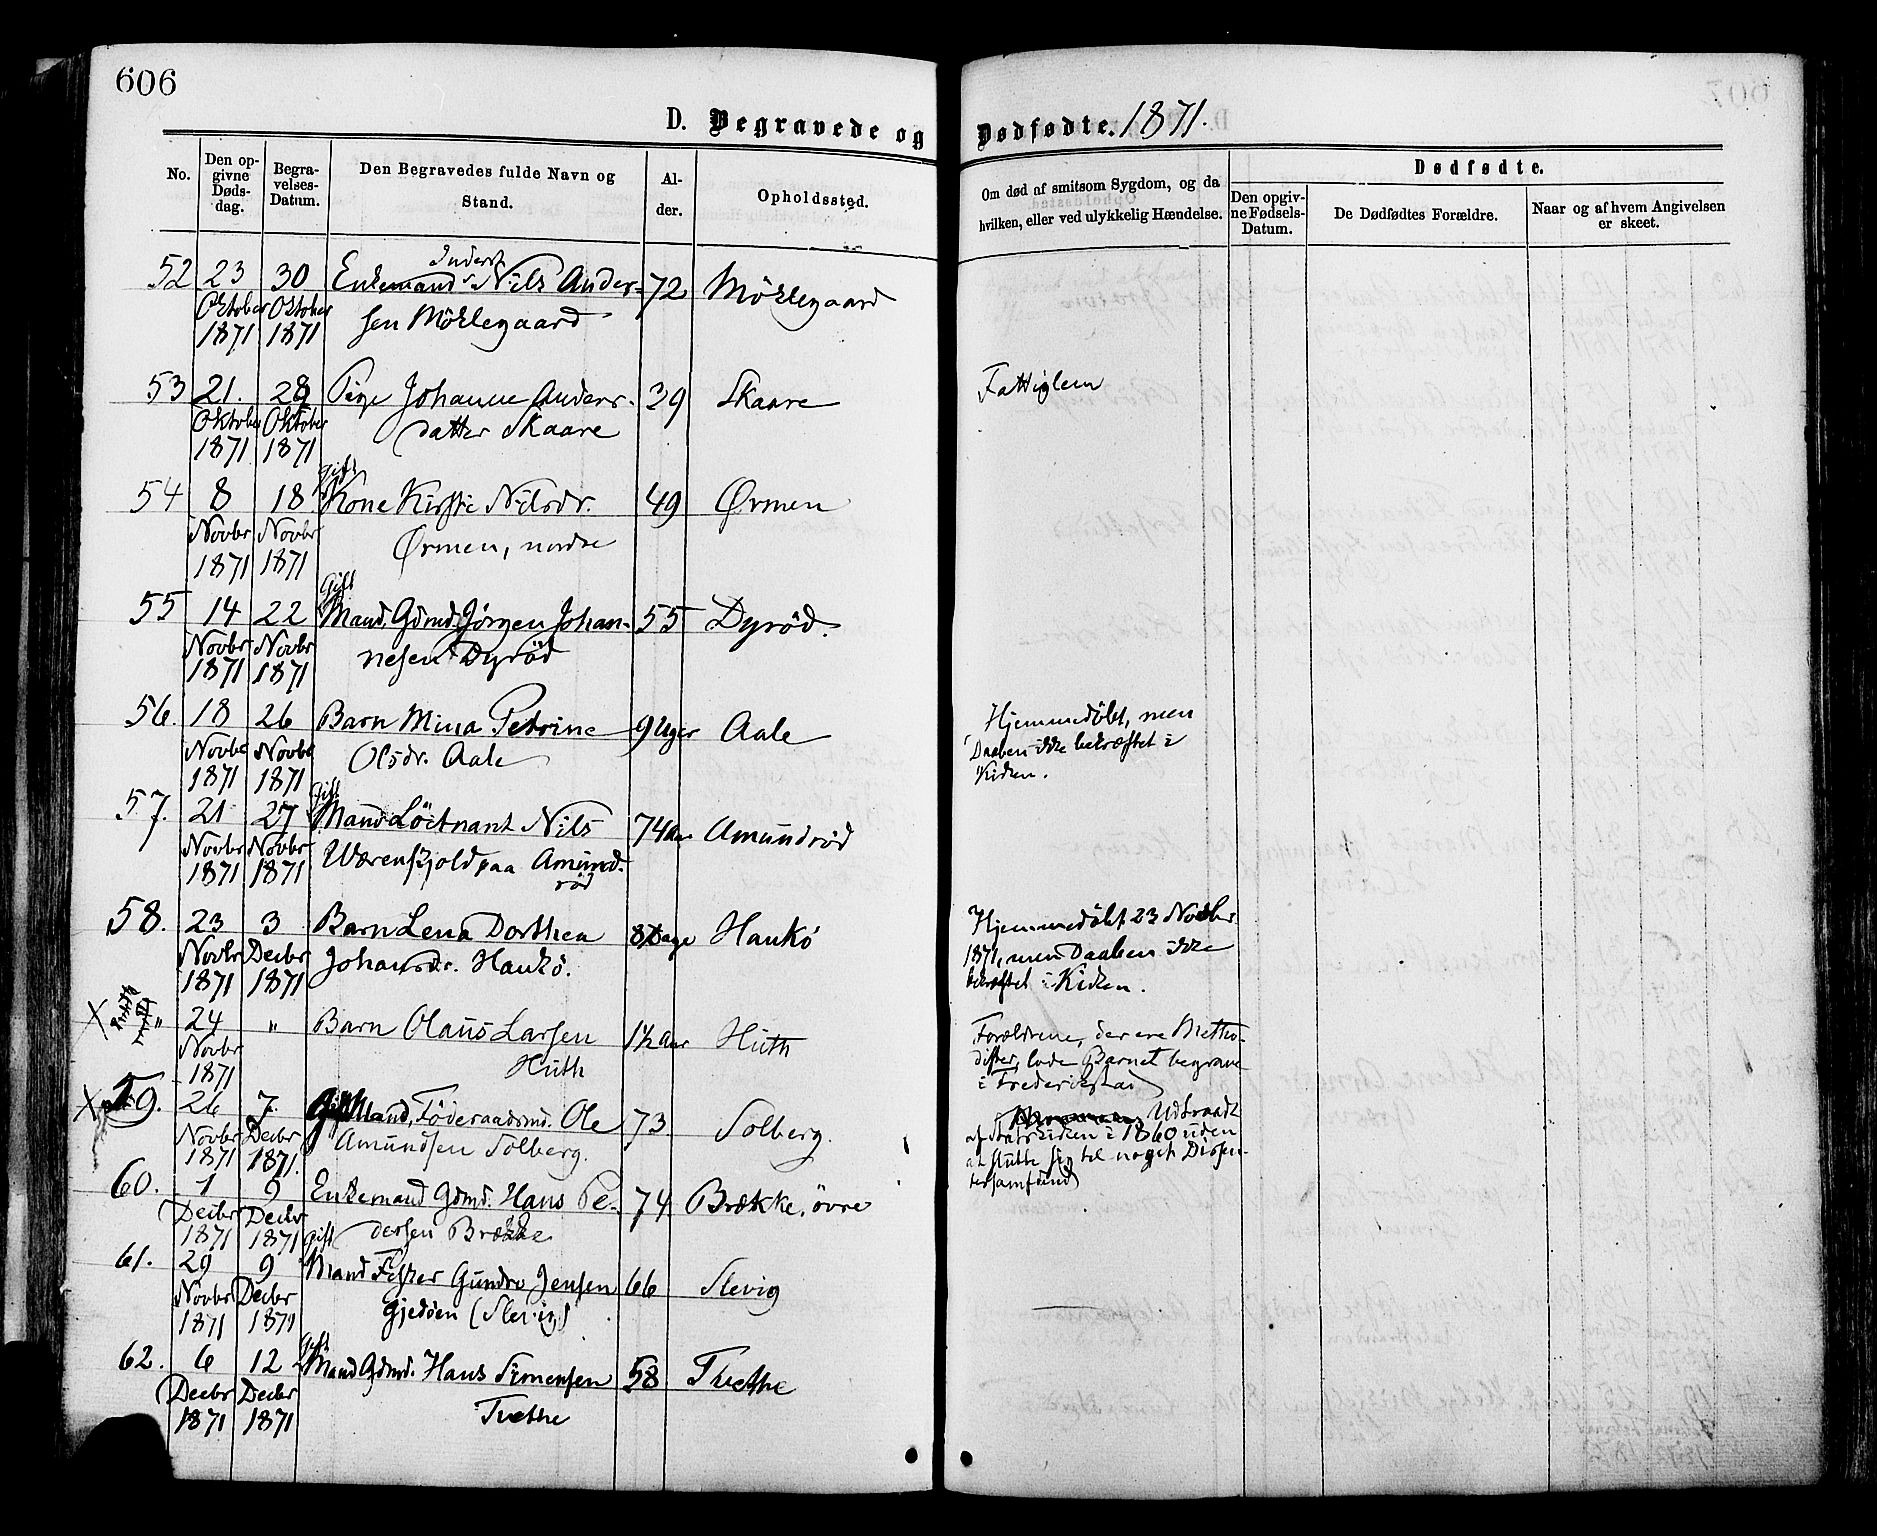 606
D. Begravede og Dødfødte. 1871.
No.
Den opgivne Døds-dag.
Begravelses-Datum.
Den Begravedes fulde Navn og Stand.
Alder.
Opholdssted.
Om død af smitsom Sygdom, og da hvilken, eller ved ulykkelig Hændelse.
Dødfødte.
Den opgivne Fødsels-Datum.
De Dødfødtes Forældre.
Naar og af hvem Angivelsen er skeet.
52 23 30 Enkemand Inderst Nils Ander- 72 Möklegaard
Oktober Oktober sen Möklegaard
1871 1871
53 21. 28 Pige Johanne Anders- 39 Skaare Fattiglem
Oktober Oktober datter Skaare
1871 1871
gift
54 8 18 Kone Kirsti Nilsdr. 49 Ørmen
Novbr Novbr Ørmen, nordre
1871 1871
Gift
55 14 22 Mand. Gdmd. Jörgen Johan- 55 Dyröd.
Novbr Novbr nesen Dyröd
1871 1871
56. 18 26 Barn Mina Petrine 9 Uger Aale Hjemmedöbt, men
Novbr Novbr Olsdr. Aale Daaben ikke bekræftet i
1871 1871 Kirken.
Gift
57. 21 27 Mand Löitnant Nils 74 Aar Amundröd
Novbr Novbr Wærenskjold paa Amund-
1871 1871 röd
58. 23 3 Barn Lena Dorthea 8 Dage Hankö Hjemmedöbt 23 Novbr
Novbr Decbr Johansdr. Hankö. 1871, men Daaben ikke
1871 1871 bekræftet i Kirken.
X " 24 " Barn Olaus Larsen 1½ Aar Huth Forældrene, der ere Metho-
Novbr Huth dister, lode Barnet begrave
1871 i Frederikstad
X 59. 26 7. Gift Mand, Föderaadsmd. Ole 73. Solberg. Udtraadt
Novbr Decbr Amundsen Solberg. af Statskirken i 1860 uden
1871 1871. at slutte sig til noget Dissen-
tersamfund
60. 1 9 Enkemand Gdmd. Hans Pe- 74 Brække, övre
Decbr Decbr dersen Brække
1871 1871
Gift
61. 29 9 Mand Gundro Jensen 66 Slevig
Novbr Decbr Gjedöen (Slevig)
1871 1871
Gift
62. 6 12 Mand Gdmd. Hans Simensen 58 Thvethe
Decbr Decbr Tvethe
1871 1871